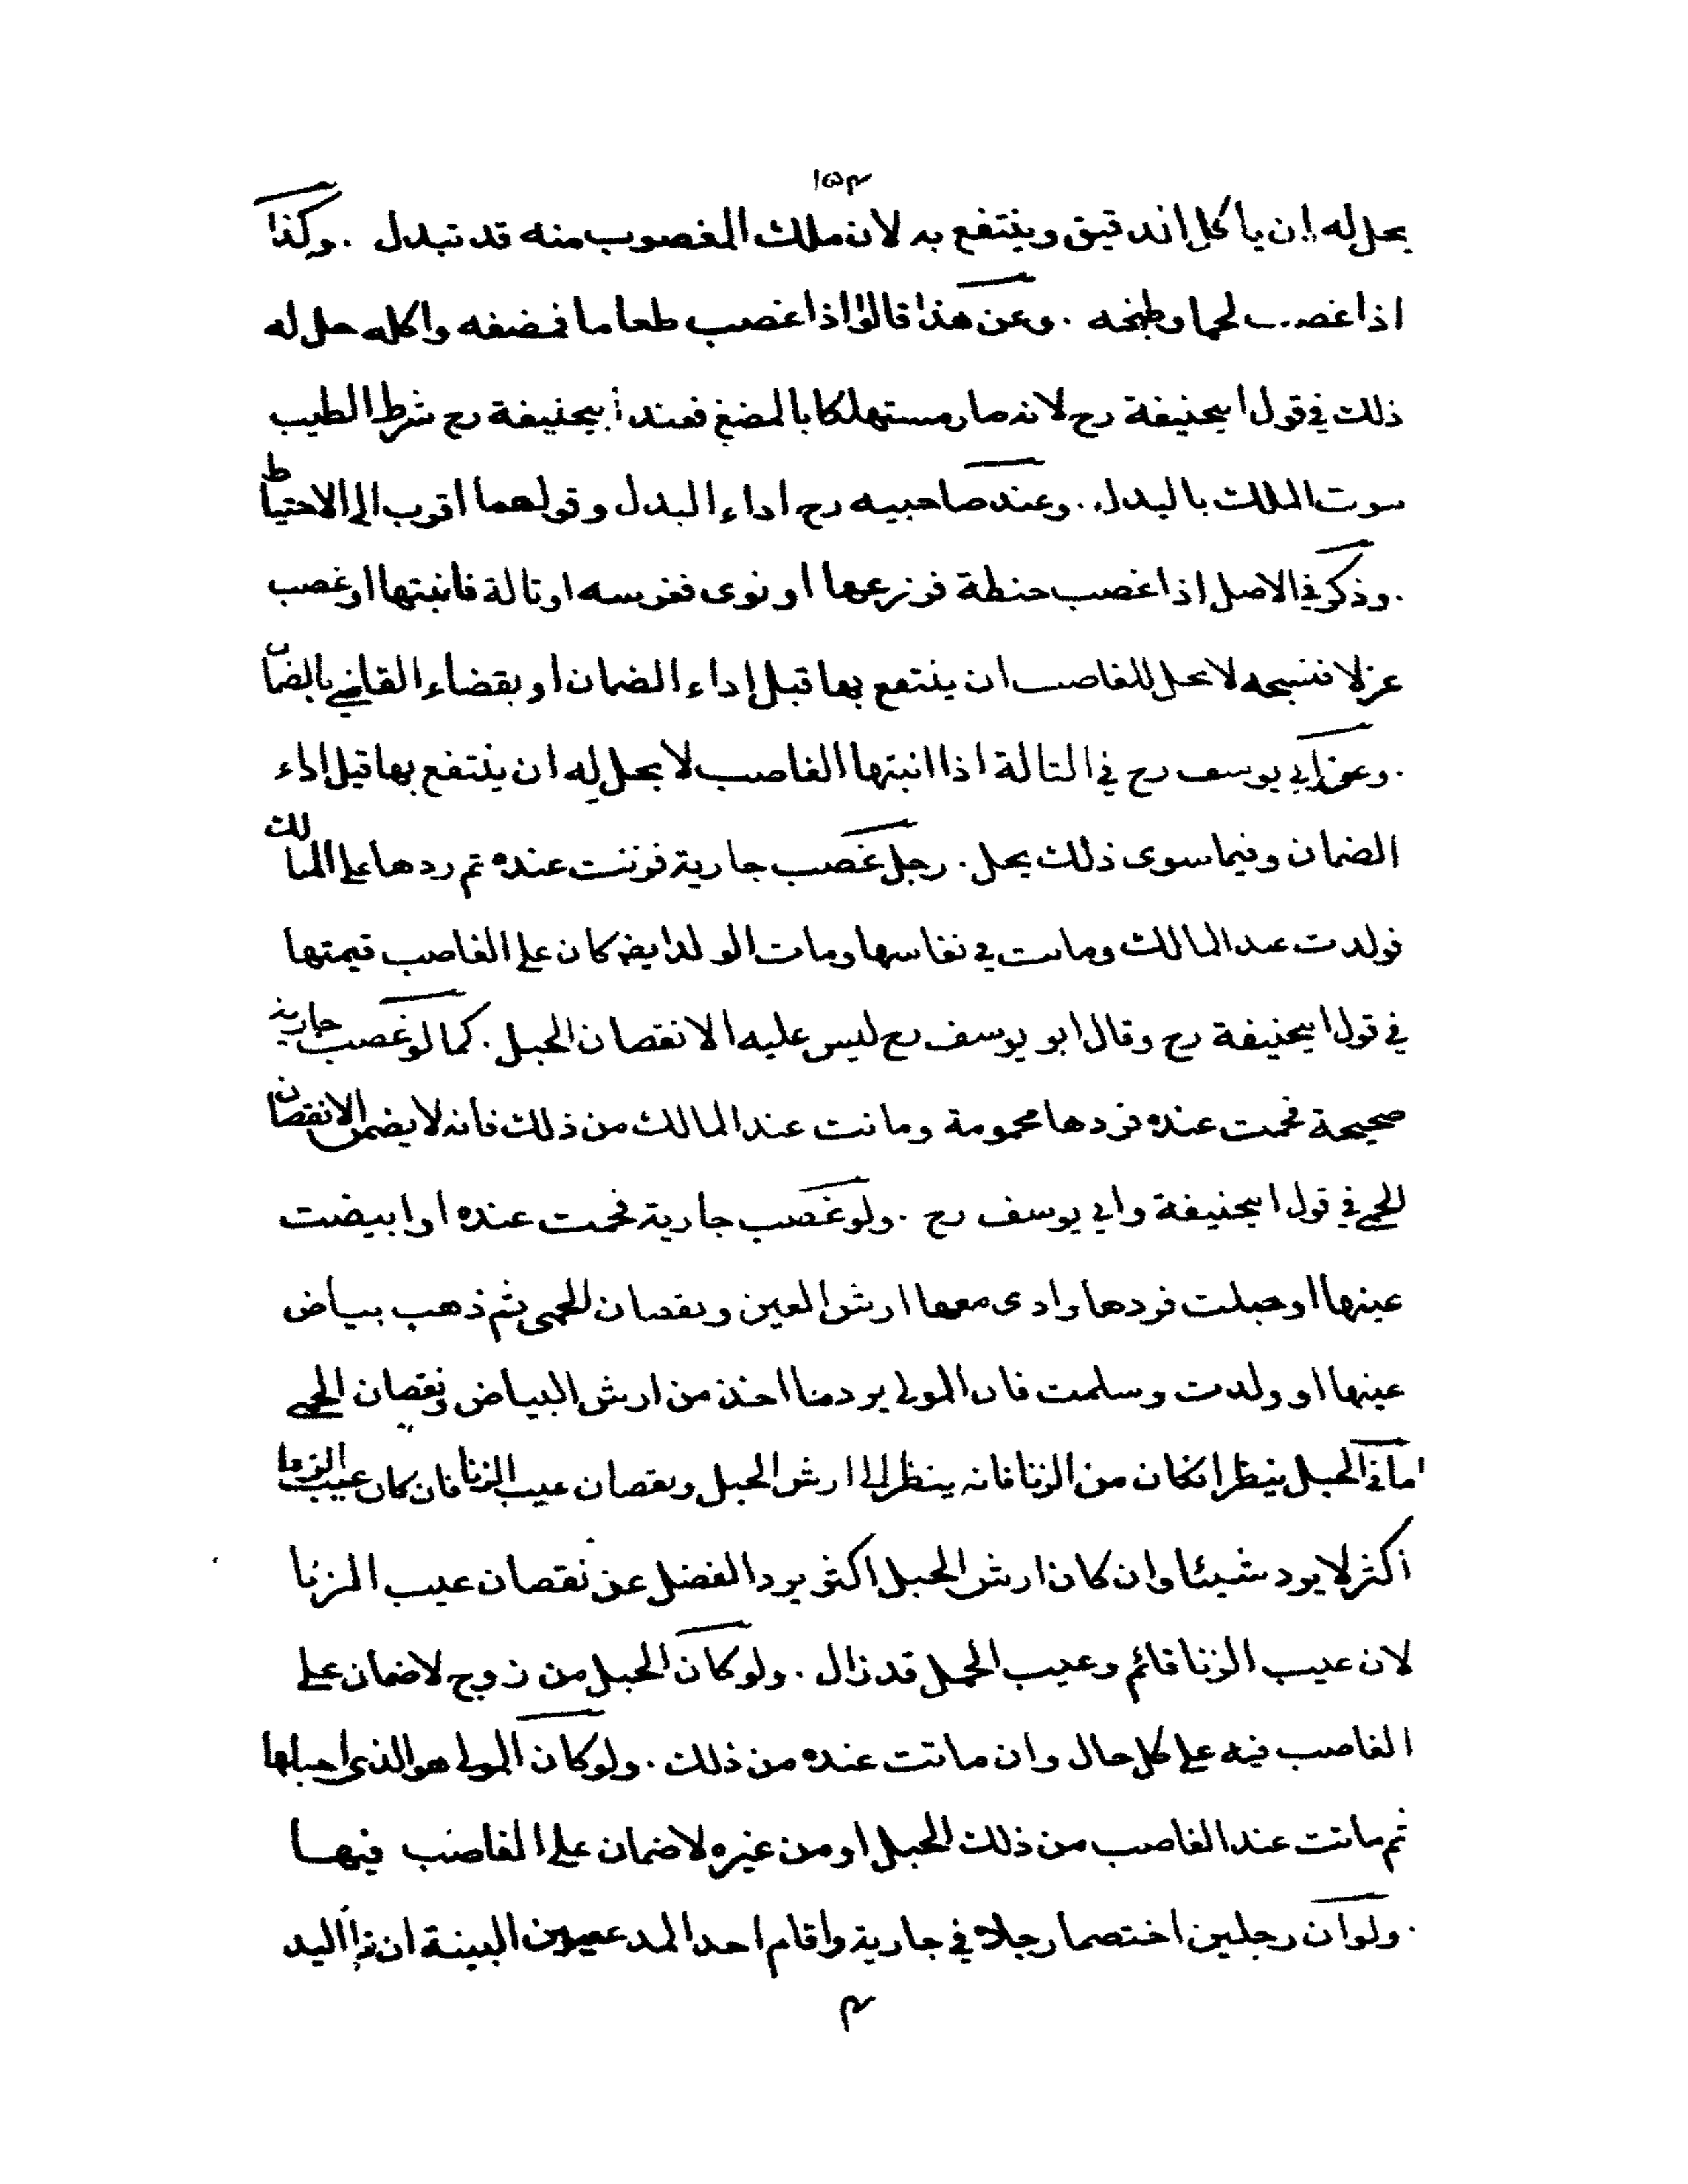 ١٥٣
يحل له ان ياكل الدقيق وينتفع به لان ملك المغصوب منه قد تبدل . وكذا
اذا غصب لحما وطبخه . وعن هذا قالوا اذا غصب طعاما فمضغه واكله حل له
ذلك في قول ابيحنيفة رح لانه صار مستهلكا بالمضغ فعند أبيحنيفة رح شرط الطيب
الملك بالبدل . وعند صاحبيه رح اداء البدل وقولهما اقرب الى الاحتياط
. وذكر في الاصل اذا غصب حنطة فزرعها او نوى فغرسه او تالة فانبتها او غصب
غزلا فنسجه لا يحل للغاصب ان ينتفع بها قبل اداء الضمان او بقضاء القاضي بالضمان
. وعن ابي يوسف رح في التالة اذا انبتها الغاصب لا يحل له ان ينتفع بها قبل اداء
الضمان وفيما سوى ذلك يحل . رجل غصب جارية فزنت عنده ثم ردها على المالك
فولدت عند المالك وماتت في نفاسها ومات الولد ايضا كان على الغاصب قيمتها
في قول ابيحنيفة رح وقال ابو يوسف رح ليس عليه الا نقصان الحبل . كما لو غصب جارية
صحيحة فحمت عنده فردها محمومة وماتت عند المالك من ذلك فانه لا يضمن الا نقصان
الحمى في قول ابيحنيفة وابي يوسف رح . ولو غصب جارية فحمت عنده او ابيضت
عينها او حبلت فردها وادى معها ارش العين ونقصان الحمى ثم ذهب بياض
عينها او ولدت وسلمت فان المولى يرد ما اخذ من ارش البياض ونقصان الحمى
اما في الحبل ينظر انكان من الزنا فانه ينظر الى ارش الحبل ونقصان عيب الزنا فان كان عيب الزنا
اكثر لا يرد شيئا وان كان ارش الحبل اكثر يرد الفضل عن نقصان عيب الزنا
لان عيب الزنا قائم وعيب الحمل قد زال . ولو كان الحبل من زوج لا ضمان على
الغاصب فيه على كل حال وان ماتت عنده من ذلك . ولو كان المولى هو الذي احبلها
ثم ماتت عند الغاصب من ذلك الحبل او من غيره لا ضمان على الغاصب فيها
. ولو ان رجلين اختصما رجلا في جارية واقام احد المدعيين البينة ان ذا اليد
٣